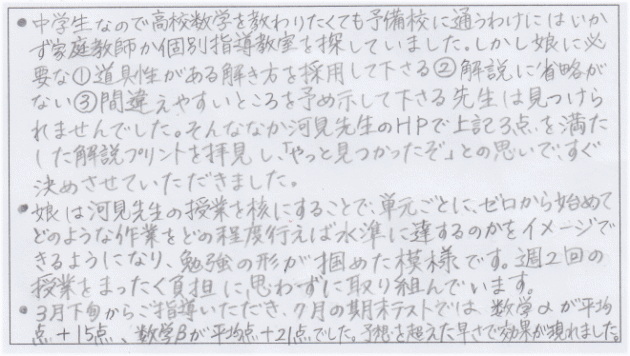 • 中学生なので高校数学を教わりたくても予備校に通うわけにはいか
ず家庭教師か個別指導教室を探していました。しかし娘に必
要な①道具性がある解き方を採用して下さる②解説に省略が
ない③間違えやすいところを予め示して下さる先生は見つけら
れませんでした。そんななか河見先生のHPで上記3点を満た
した解説プリントを拝見し、「やっと見つかったぞ」との思いで、すぐ
決めさせていただだきました。
• 娘は河見先生の授業を核にすることで、単元ごとに、ゼロから始めて
どのような作業をどの程度行えば水準に達するのかをイメージで
きるようになり、勉強の形が掴めた模様です。週2回の
授業をまったく負担に思わずに取り組んでいます。
• 3月下旬からご指導いただき、7月の期末テストでは、数学αが平均
点+15点、数学βが平均点+21点でした。予想を超えた早さで効果が現れました。